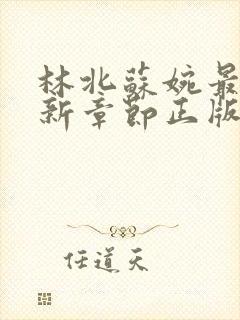 林北蘇婉最
新章節正版
任道天